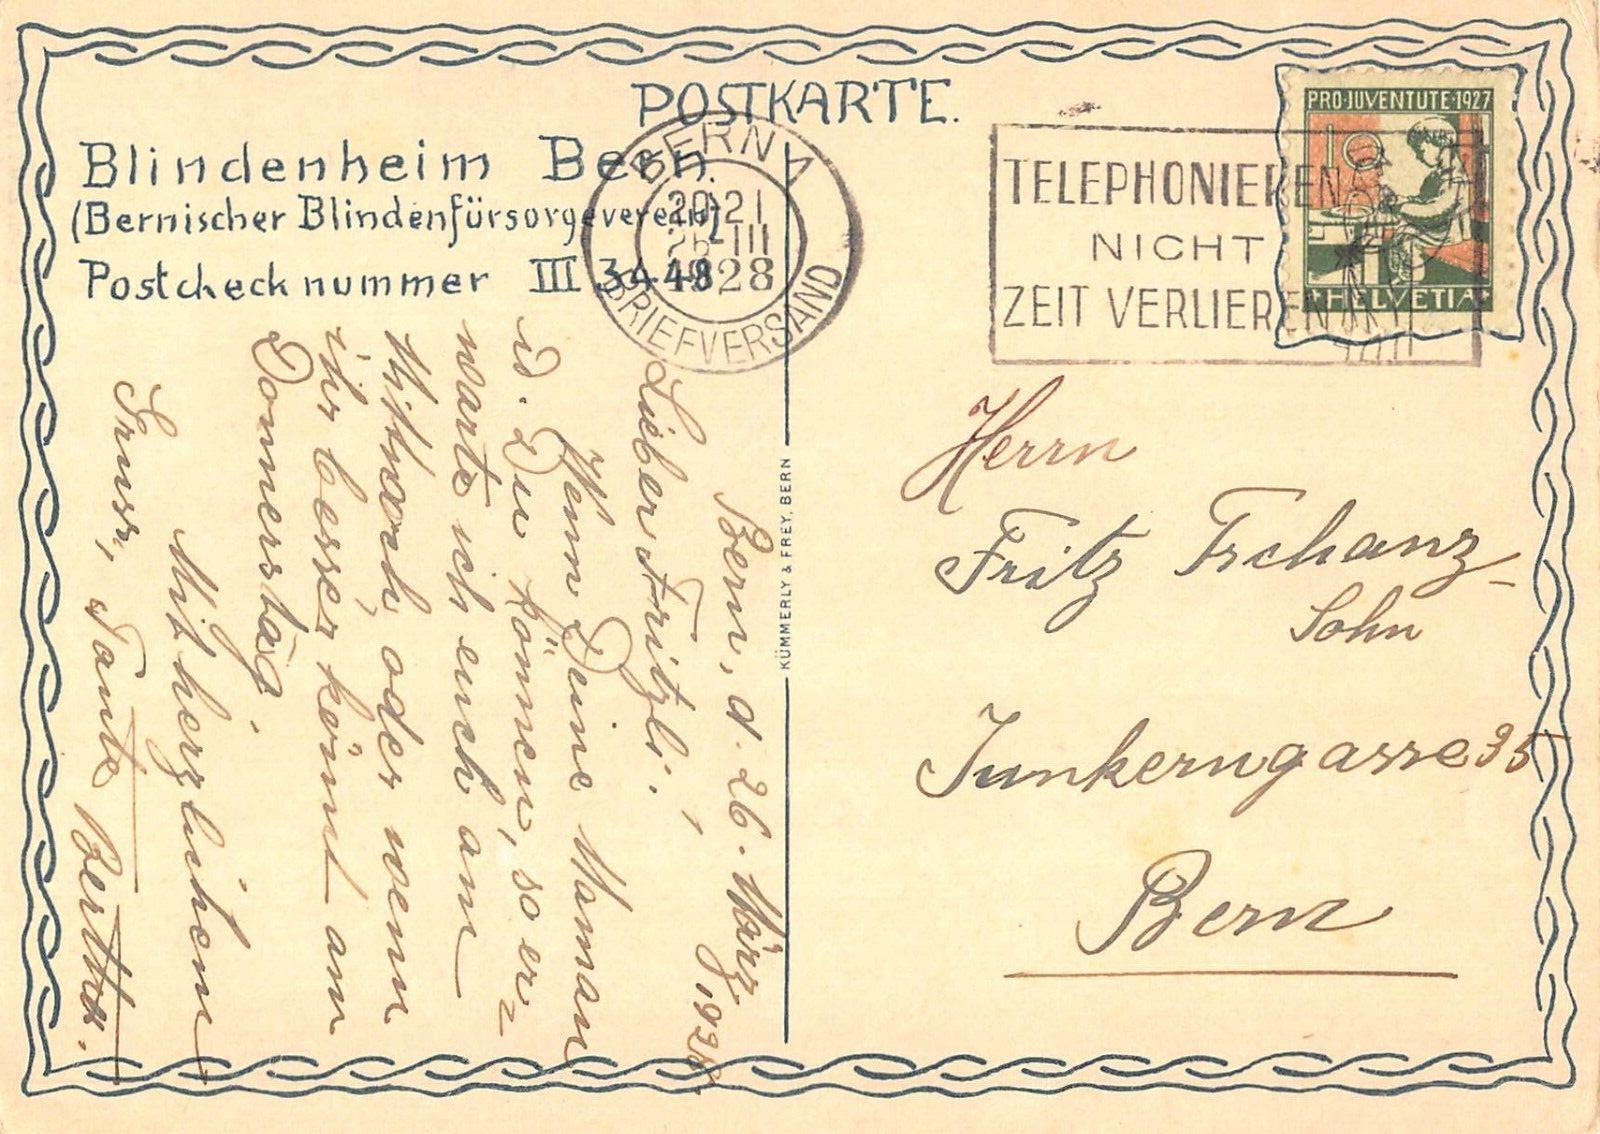 POSTKARTE.
Blindenheim Bern.
(Bernischer Blindenfürsorgeverein)
Postcheck nummer III 3448
BERN 1
20-21
26 III
1928
BRIEFVERSAND
TELEPHONIEREN
NICHT
ZEIT VERLIEREN
PRO JUVENTUTE·1927
HELVETIA
KÜMMERLY & FREY, BERN
Bern, d. 26. März 1928.
Lieber Fritzli!,
Wenn Deine Maman
u. Du können, so er=
warte ich euch am
Mittwoch oder wenn
ihr besser könnt am
Donnerstag.
Mit herzlichem
Gruss, Tante Bertha.
Herrn
Fritz Tschanz-
Sohn
Junkerngasse 35
Bern